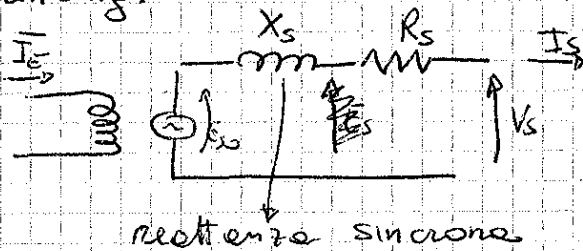 X_s R_s I_s
I_e
V_s
reattanza sincrona